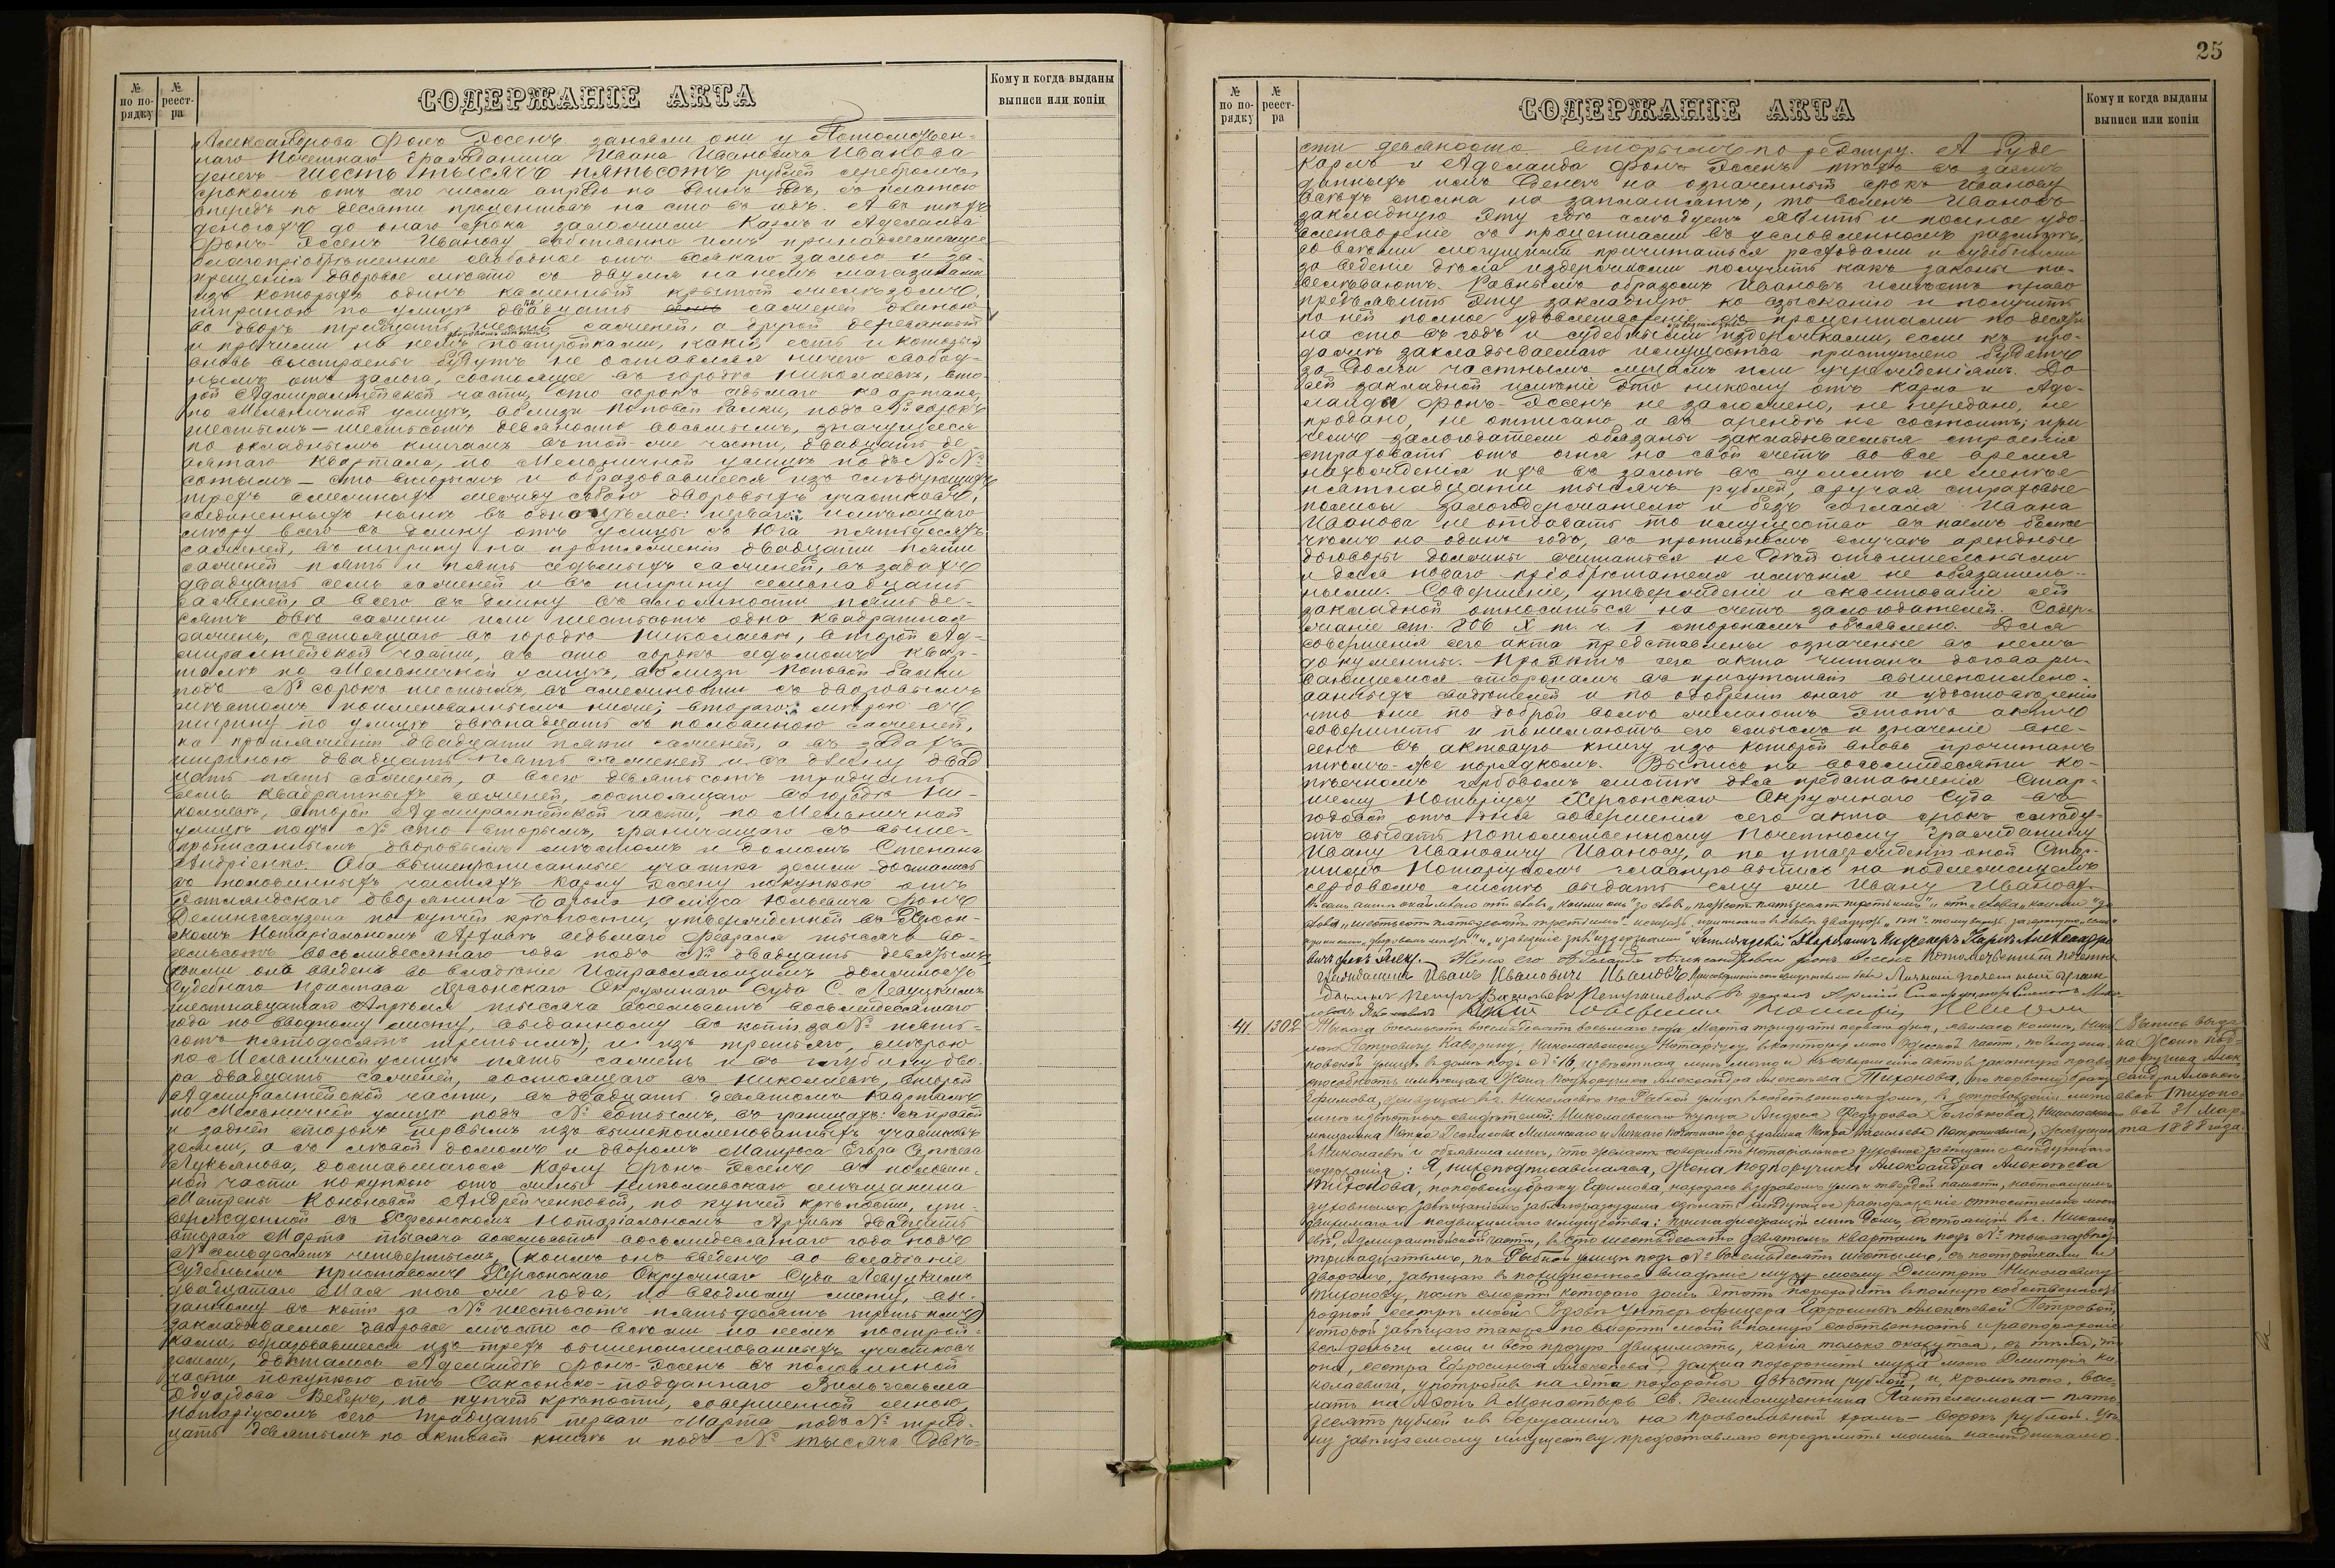 № по по-рядку
№ реест-ра
СОДЕРЖАНІЕ АКТА
Кому и когда выданы выписи или копіи
Александрова Фонъ Эссенъ заняли они у Потомствен-
наго Почетнаго Гражданина Ивана Ивановича Иванова
денегъ шесть тысячъ пятьсотъ рублей серебромъ,
срокомъ отъ сего числа впредь на одинъ годъ, съ платою
впередъ по десяти процентовъ на сто въ годъ. А въ тѣхъ
деньгахъ до онаго срока заложили Карлъ и Аделаида
Фонъ-Эссенъ Иванову собственно имъ принадлежащее
благопріобрѣтенное свободное отъ всякаго залога и за-
прещенія дворовое мѣсто съ двумя на немъ магазинами
изъ которыхъ одинъ каменный крытый желѣзомъ,
шириною по улицѣ двадцать саженей длиною
во дворъ тридцать шесть саженей, а другой деревянный
и прочими на немъ постройками, какія есть и которыя
вновь выстроены будутъ не оставляя ничего свобод-
нымъ отъ залога, состоящее въ городѣ Николаевѣ, вто-
рой Адмиралтейской части, сто сорокъ седьмаго квартала,
по Мельничной улицѣ, вблизи Поповой балки, подъ № сорокъ
шестымъ – шестьсотъ девяносто восьмымъ, значущееся
по окладнымъ книгамъ въ той-же части, двадцать де-
вятаго квартала, по Мельничной улицѣ подъ №№
сотымъ – сто вторымъ и образовавшееся изъ слѣдующихъ
трехъ смежныхъ между собою дворовыхъ участковъ,
соединенныхъ нынѣ въ одно цѣлое: перваго: имѣющаго
мѣру всего въ длину отъ улицы съ Юга пятьдесятъ
саженей, въ ширину на протяженіи двадцати пяти
саженей пять и пять седьмыхъ саженей, въ задахъ
двадцать семь саженей и въ ширину семьнадцать
саженей, а всего въ длину въ сложности пятьде-
сятъ двѣ сажени или шестьсотъ одна квадратная
сажень, состоящаго въ городѣ Николаевѣ, второй Ад-
миралтейской части, въ сто сорокъ седьмомъ квар-
талѣ по Мельничной улицѣ, вблизи Поповой балки
подъ № сорокъ шестымъ, въ смежности съ дворовымъ
мѣстомъ поименованнымъ ниже; втораго: мѣрою въ
ширину по улицѣ двѣнадцать съ половиною саженей,
на протяженіи двадцати пяти саженей, а въ задахъ
шириною двадцать пять саженей и въ длину двад-
цать пять саженей, а всего девятьсотъ тридцать
семь квадратныхъ саженей, состоящаго въ городѣ Ни-
колаевѣ, второй Адмиралтейской части, по Мельничной
улицѣ подъ № сто вторымъ, граничащаго съ выше-
прописаннымъ дворовымъ мѣстомъ и домомъ Степана
Андріенко. Оба вышепрописанные участка земли достались
въ половинныхъ частяхъ Карлу Эссену покупкою отъ
Эстляндскаго дворянина Барона Юліуса Юльевича Фонъ
по купчей крѣпости, утвержденной въ Херсон-
скомъ Нотаріальномъ Архивѣ седьмаго Февраля тысяча во-
семьсотъ восьмидесятаго года подъ № двадцать девятымъ
(коими онъ введенъ во владѣніе Исправляющимъ должность
Судебнаго Пристава Херсонскаго Окружнаго Суда С. Левуцкимъ
шестнадцатаго Апрѣля тысяча восемьсотъ восьмидесятаго
года по вводному листу, выданному въ копіи за № пять-
сотъ пятьдесятъ третьимъ); и изъ третьяго, мѣрою
по Мельничной улицѣ пять саженъ и въ глубину дво-
ра двадцать саженей, состоящаго въ Николаевѣ, второй
Адмиралтейской части, въ двадцать девятомъ кварталѣ
по Мельничной улицѣ подъ № сотымъ, въ границахъ: съ правой
и задней сторонъ первымъ изъ вышепоименованныхъ участковъ
земли, а съ лѣвой домомъ и дворомъ Матроса Егора Сергѣева
Лукьянова, доставшагося Карлу Фонъ-Эссенъ въ половин-
ной части покупкою отъ жены Николаевскаго мѣщанина
Матрены Кононовой Андрейченковой, по купчей крѣпости, ут-
вержденной въ Херсонскомъ Нотаріальномъ Архивѣ двадцать
втораго Марта тысяча восемьсотъ восьмидесятаго года подъ
№ семьдесятъ четвертымъ, (коимъ онъ введенъ во владѣніе
Судебнымъ Приставомъ Херсонскаго Окружнаго Суда Левуцкимъ
двадцатаго Мая того же года, по вводному листу, вы-
данному въ копіи за № шестьсотъ пятьдесятъ третьимъ)
закладываемое дворовое мѣсто со всѣми на немъ построй-
ками, образовавшееся изъ трехъ вышепоименованныхъ участковъ
земли, досталось Аделаидѣ Фонъ-Эссенъ въ половинной
части покупкою отъ Саксонско-подданнаго Вильгельма
Эдуардова Веберъ, по купчей крѣпости, совершенной мною,
Нотаріусомъ сего тридцать перваго Марта подъ № трид-
цать девятымъ по актовой книгѣ и подъ № тысяча двѣ-
25
№ по по-рядку
№ реест-ра
СОДЕРЖАНІЕ АКТА
Кому и когда выданы выписи или копіи
сти девяносто вторымъ по реестру. А буде
Карлъ и Аделаида Фонъ-Эссенъ тѣхъ въ заемъ
данныхъ имъ денегъ на означенный срокъ Иванову
всѣхъ сполна не заплатятъ, то воленъ Ивановъ
закладную эту гдѣ слѣдуетъ явить и полное удо-
влетвореніе съ процентами въ условленномъ размѣрѣ,
со всѣми могущими причитаться расходами и судебными
за веденіе дѣла издержками получить какъ законы по-
велѣваютъ. Равнымъ образомъ Ивановъ имѣетъ право
предъявить эту закладную ко взысканію и получить
по ней полное удовлетвореніе съ процентами по десяти
на сто въ годъ и судебными издержками, если къ про-
дажѣ закладываемаго имущества приступлено будетъ
за долги частнымъ лицамъ или учрежденіямъ. До
сей закладной имѣніе это никому отъ Карла и Аде-
лаиды Фонъ-Эссенъ не заложено, не передано, не
продано, не отписано и въ арендѣ не состоитъ; при
чемъ залогодатели обязаны закладываемыя строенія
страховать отъ огня на свой счетъ во все время
нахожденія ихъ въ залогѣ въ суммѣ не менѣе
пятнадцати тысячъ рублей, вручая страховые
полисы залогодержателю и безъ согласія Ивана
Иванова не отдавать то имущество въ наемъ болѣе
чѣмъ на одинъ годъ, въ противномъ случаѣ арендные
договоры должны считаться не дѣйствительными
и для новаго пріобрѣтателя имѣнія не обязатель-
ными. Совершеніе, утвержденіе и скитованіе сей
закладной относится на счетъ залогодателей. Содер-
жаніе ст. 706 X т. ч. 1 сторонамъ объявлено. Для
совершенія сего акта представлены означенные въ немъ
документы. Проэктъ сего акта читанъ договари-
вающимся сторонамъ въ присутствіи вышепоимено-
ванныхъ свидѣтелей и по одобреніи онаго и удостовѣреніи
что они по доброй волѣ желаютъ этотъ актъ
совершить и понимаютъ его смыслъ и значеніе вне-
сенъ въ актовую книгу изъ которой вновь прочитанъ
тѣмъ-же порядкомъ. Выпись на восьмидесяти ко-
пѣечномъ гербовомъ листѣ для представленія Стар-
шему Нотаріусу Херсонскаго Окружнаго Суда въ
годовой отъ дня совершенія сего акта срокъ слѣду-
етъ выдать Потомственному Почетному Гражданину
Ивану Ивановичу Иванову, а по утвержденіи оной Стар-
шимъ Нотаріусомъ главную выпись на подлежащемъ
гербовомъ листѣ выдать ему же Ивану Иванову.
Жена его Аделаида Александровна фонъ Эссенъ Потомственный почетный
гражданинъ Иванъ Ивановичъ Ивановъ
41
1302
Тысяча восемьсотъ восемьдесятъ восьмаго года Марта тридцать перваго дня, явилась ко мнѣ, Нико-
лаю Петровичу Каверину, Николаевскому Нотаріусу, въ контору мою Одесской части, по
улицѣ въ домѣ подъ № 16, извѣстная мнѣ лично и къ совершенію актовъ законную право-
способность имѣющая Жена Подпоручика Александра Алексѣева Тихонова, по первому браку
Ефимова, живущая въ г. Николаевѣ по Рыбной улицѣ въ собственномъ домѣ, въ сопровожденіи лично
мнѣ извѣстныхъ свидѣтелей: Николаевскаго купца Андрея Федорова Головкова, Николаевскаго
мѣщанина Петра Денисова и Личнаго почетнаго гражданина Петра Васильева Петрашевича, живущихъ
въ Николаевѣ и объявила мнѣ, что желаетъ совершить нотаріальное духовное завѣщаніе слѣдующаго
содержанія: Я, нижеподписавшаяся, Жена подпоручика Александра Алексѣева
Тихонова, по первому браку Ефимова, находясь въ здравомъ умѣ и твердой памяти, настоящимъ
духовнымъ завѣщаніемъ заблагоразсудила сдѣлать слѣдующее распоряженіе относительно моего
движимаго и недвижимаго имущества: принадлежащій мнѣ домъ, состоящій въ г. Никола-
евѣ, Адмиралтейской части, въ сто шестьдесятъ девятомъ кварталѣ подъ №
тринадцатымъ, по Рыбной улицѣ подъ № восемьдесятъ шестымъ, съ постройками и
дворомъ, завѣщаю въ пожизненное владѣніе мужу моему Дмитрію Николаевичу
Тихонову, послѣ смерти котораго домъ этотъ переходитъ въ полную собственность
родной сестры моей Вдовы Унтеръ офицера Ефросиньи Алексѣевой Петровой,
которой завѣщаю также по смерти моей въ полную собственность и распоряженіе
всѣ деньги мои и всю прочую движимость, какія только окажутся, съ тѣмъ, что
она, сестра Ефросинья Алексѣева, должна похоронить мужа моего Дмитрія Ни-
колаевича, употребивъ на эти похороны двѣсти рублей, и, кромѣ того, вос-
лать на Афонъ въ Монастырь Св. Великомученника Пантелеимона – пять-
десятъ рублей и въ Іерусалимъ на православный храмъ – сорокъ рублей. Цѣ-
ну завѣщаемому имуществу предоставляю опредѣлить моимъ наслѣдникамъ.
Выпись выда-
на Женѣ под-
поручика Алек-
сандрѣ Алексѣ-
евой Тихоно-
вой 31 Мар-
та 1888 года.